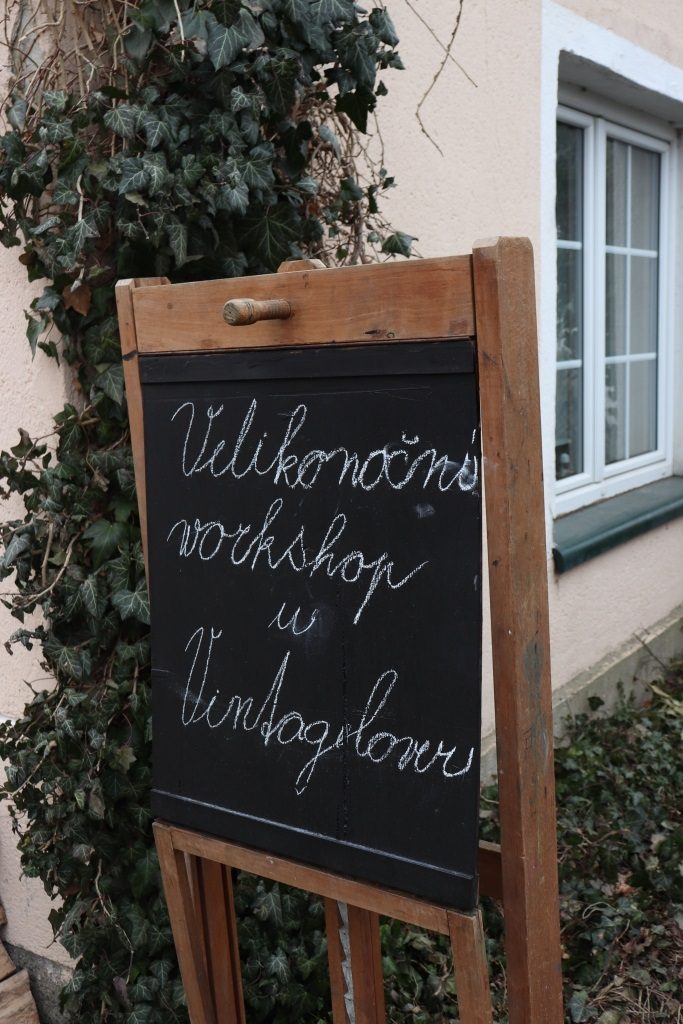 Velikonoční
workshop
u
Vintagelover